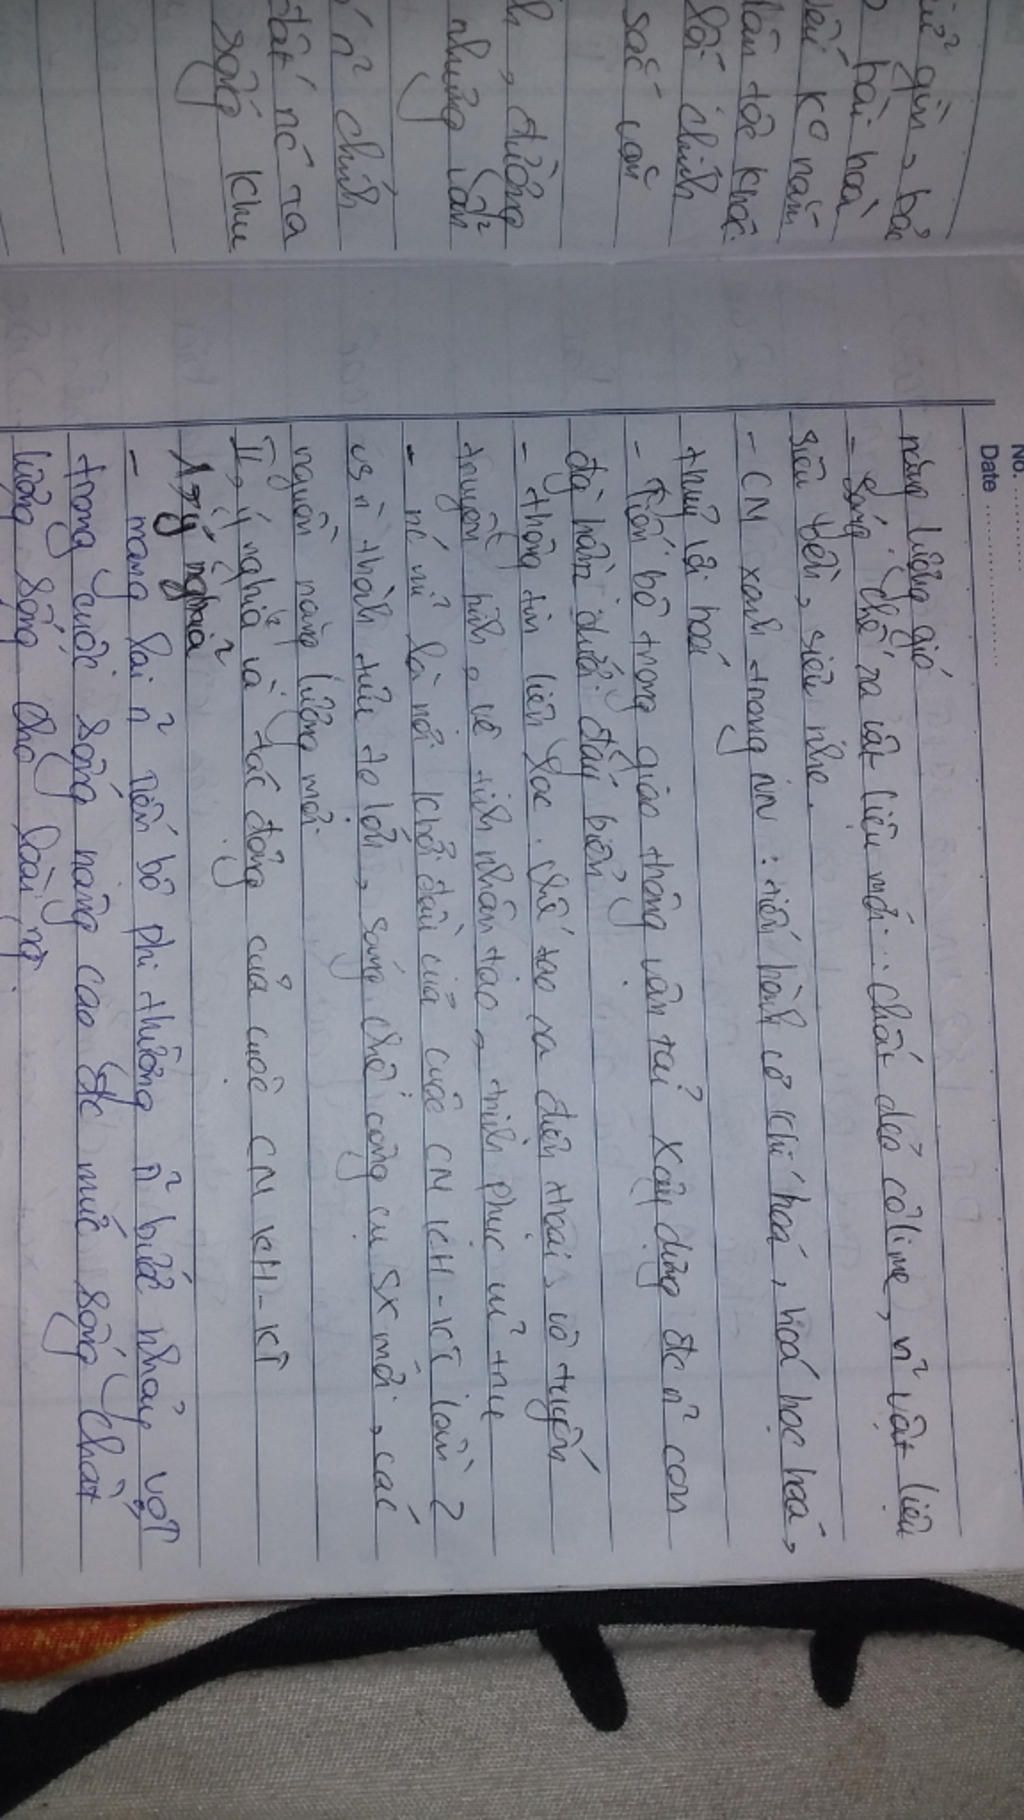 iữ gìn, bảo
bài hoà
yếu ko nằm
dân tộc khác.
lối chính
sắc văn
h, đường
những vấn
n² chính
đất nc ta
sống khu
No. ............
Date .....................
năng lượng gió
- Sáng chế ra vật liệu mới: chất dẻo côlime, n² vật liệu
siêu bền, siêu nhẹ.
- CM xanh trong NN: tiến hành cơ khí hoá, hoá học hoá,
thuỷ lợi hoá
- Tiến bộ trong giao thông vận tải xây dựng đc n² con
đg hầm dưới đáy biển
- thông tin liên lạc. chế tạo ra điện thoại, vô tuyến
truyền hình, vệ tinh nhân tạo, trinh phục vũ trụ
- nc mĩ là nơi khởi đầu của cuộc CM KH-KT lần 2
vs n² thành tựu to lớn, sáng chế công cụ SX mới, các
nguồn năng lượng mới
II, ý nghĩa và tác động của cuộc CM KH-KT
1, ý nghĩa
- mang lại n² tiến bộ phi thường n² bước nhảy vọt
trong cuộc sống nâng cao đc mức sống chất
lượng sống cho loài ng.